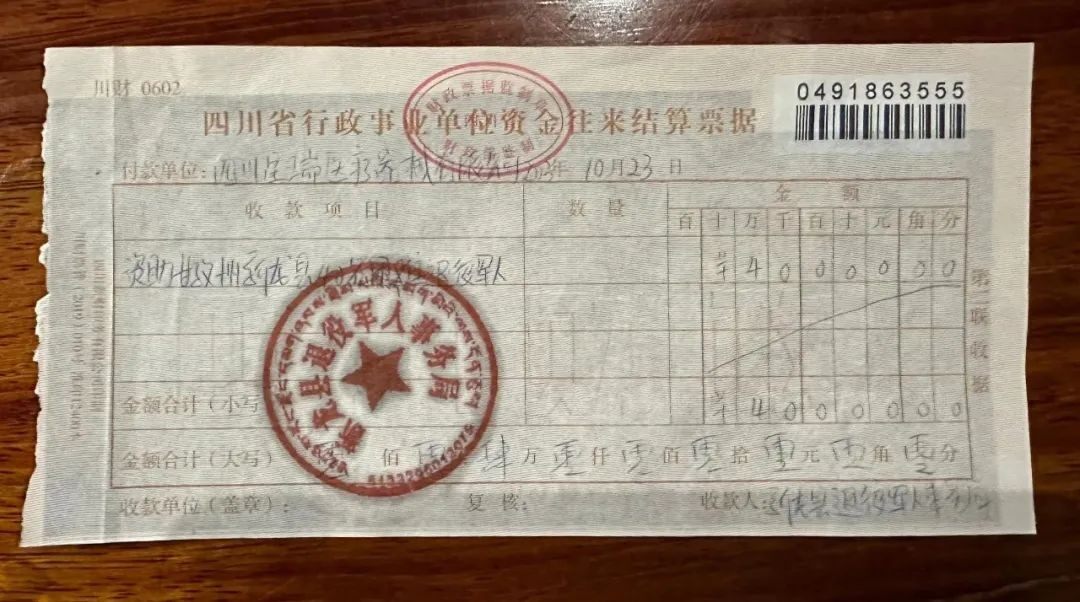 川财 0602
财政票据监制章
财政部监制
0491863555
四川省行政事业单位资金往来结算票据
付款单位：四川 瑞医疗 械有限公司 2023年 10月23日
收款项目 数量 金额
百 十 万 千 百 十 元 角 分
资助甘孜州新龙县 困难退役军人 ¥ 4 0 0 0 0 0 0
金额合计（小写 ¥ 4 0 0 0 0 0 0
金额合计（大写） 佰 零 肆 万 零 仟 零 佰 零 拾 零 元 零 角 零 分
收款单位（盖章）： 复核： 收款人：新龙县退役军人事务局
新龙县退役军人事务局
第二联 收据